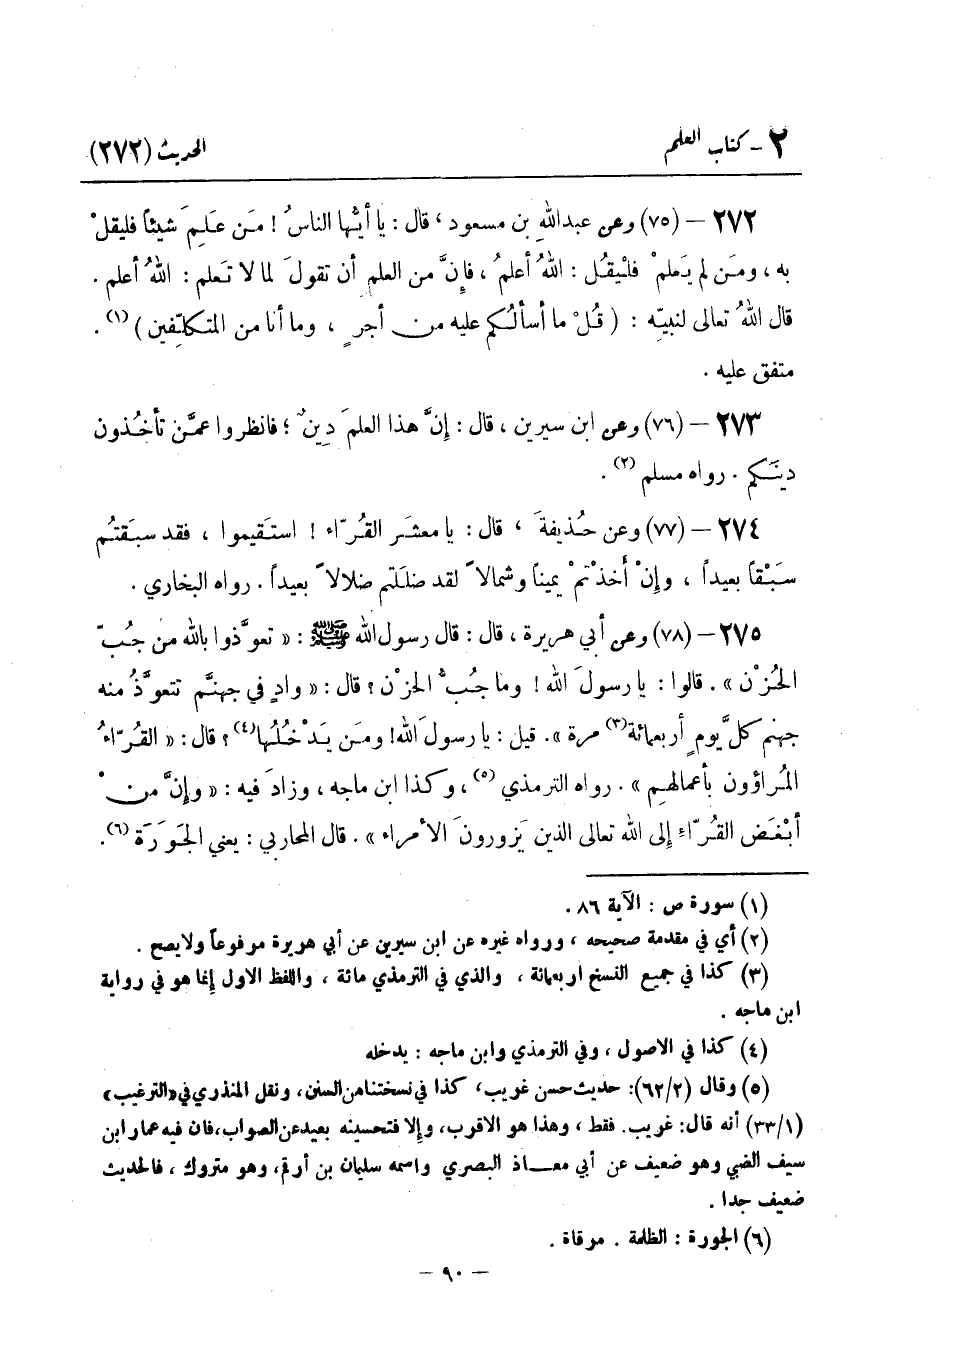 ٢ - كتاب العلم
الحديث (٢٧٢)
٢٧٢ – (٧٥) وعن عبدالله بن مسعود ، قال : يا أيُّها الناسُ ! مَن عَلِمَ شيئاً فليقلْ
به ، ومَن لم يَعلمْ فلْيقُل : اللهُ أعلمُ ، فإنَّ من العلم أن تقولَ لما لا تَعلم : اللهُ أعلم .
قال اللهُ تعالى لنبيّه : ( قُلْ ما أسألُكم عليه من أجرٍ ، وما أنا من المتكلِّفين ) (١) .
متفق عليه .
٢٧٣ – (٧٦) وعن ابن سيرين ، قال : إنَّ هذا العلمَ دِينٌ ؛ فانظروا عمَّن تأخُذون
دينَكم . رواه مسلم (٢) .
٢٧٤ – (٧٧) وعن حُذيفةَ ، قال : يا معشَر القُرّاء ! استَقيموا ، فقد سبَقتُم
سَبْقاً بعيداً ، وإنْ أخذْتمْ يميناً وشمالاً لقد ضلَلتم ضلالاً بعيداً . رواه البخاري .
٢٧٥ – (٧٨) وعن أبي هريرة ، قال : قال رسول الله ﷺ : « تعوَّذوا بالله من جُبّ
الحُزْن » . قالوا : يا رسولَ الله ! وما جُبُّ الحزْن ؟ قال : « وادٍ في جهنَّم تتعوَّذُ منه
جهنم كلَّ يومٍ أربعمائة(٣) مرة ». قيل : يا رسولَ الله! ومَن يَدْخُلُها(٤)؟ قال : « القُرّاءُ
المُراؤون بأعمالهم » . رواه الترمذي (٥) ، وكذا ابن ماجه ، وزادَ فيه : « وإنَّ منْ
أبْغَض القُرّاءِ إلى الله تعالى الذين يَزورونَ الأمراء » . قال المحاربي : يعني الجَوَرَة (٦).
(١) سورة ص : الآية ٨٦ .
(٢) أي في مقدمة صحيحه ، ورواه غيره عن ابن سيرين عن أبي هريرة مرفوعاً ولايصح .
(٣) كذا في جميع النسخ اربعمائة ، والذي في الترمذي مائة ، واللفظ الاول إنما هو في رواية
ابن ماجه .
(٤) كذا في الاصول ، وفي الترمذي وابن ماجه : يدخله
(٥) وقال (٦٢/٢): حديث حسن غريب، كذا في نسختنا من السنن، ونقل المنذري في «الترغيب»
(٣٣/١) أنه قال: غريب. فقط ، وهذا هو الاقرب، وإلا فتحسينه بعيد عن الصواب، فان فيه عمار ابن
سيف الضبي وهو ضعيف عن أبي معـاذ البصري واسمه سليمان بن أرقم، وهو متروك ، فالحديث
ضعيف جدا .
(٦) الجورة : الظلمة . مرقاة .
– ٩٠ –